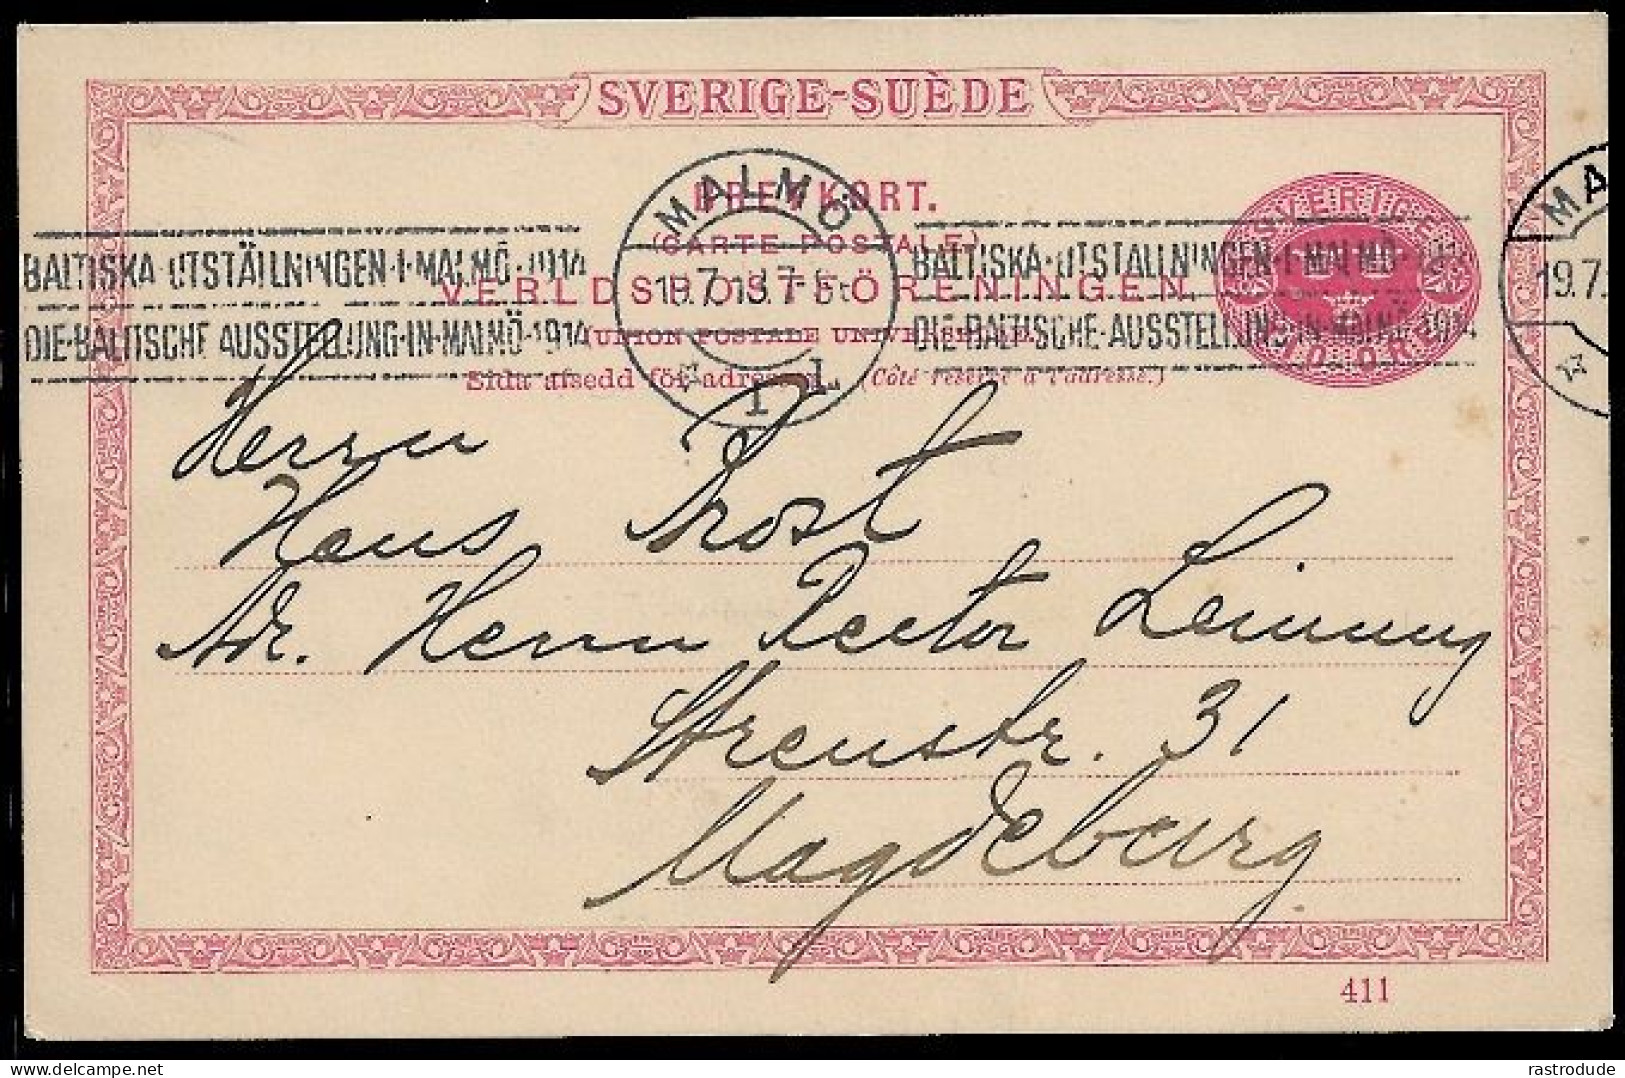 SVERIGE-SUÈDE
BREFKORT.
(CARTE POSTALE)
VERLDSPOSTFÖRENINGEN.
(UNION POSTALE UNIVERSELLE.)
Sida afsedd för adressen. (Côté réservé à l'adresse.)
SVERIGE
TIO ÖRE
MALMÖ
19.7.13.7
1 L
BALTISKA·UTSTÄLLNINGEN·I·MALMÖ·1914
DIE·BALTISCHE AUSSTELLUNG·IN·MALMÖ·1914
BALTISKA·UTSTÄLLNINGEN·I·MALMÖ·1914
DIE·BALTISCHE·AUSSTELLUNG·IN·MALMÖ·1914
MA
19.7.
Herrn
Hans Drost
Adr. Herrn Rector Leinung
Streustr. 31
Magdeburg
411
www.delcampe.net
rastrodude